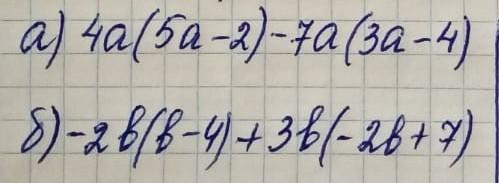 а) 4a(5a-2)-7a(3a-4)
б) -2b(b-4)+3b(-2b+7)